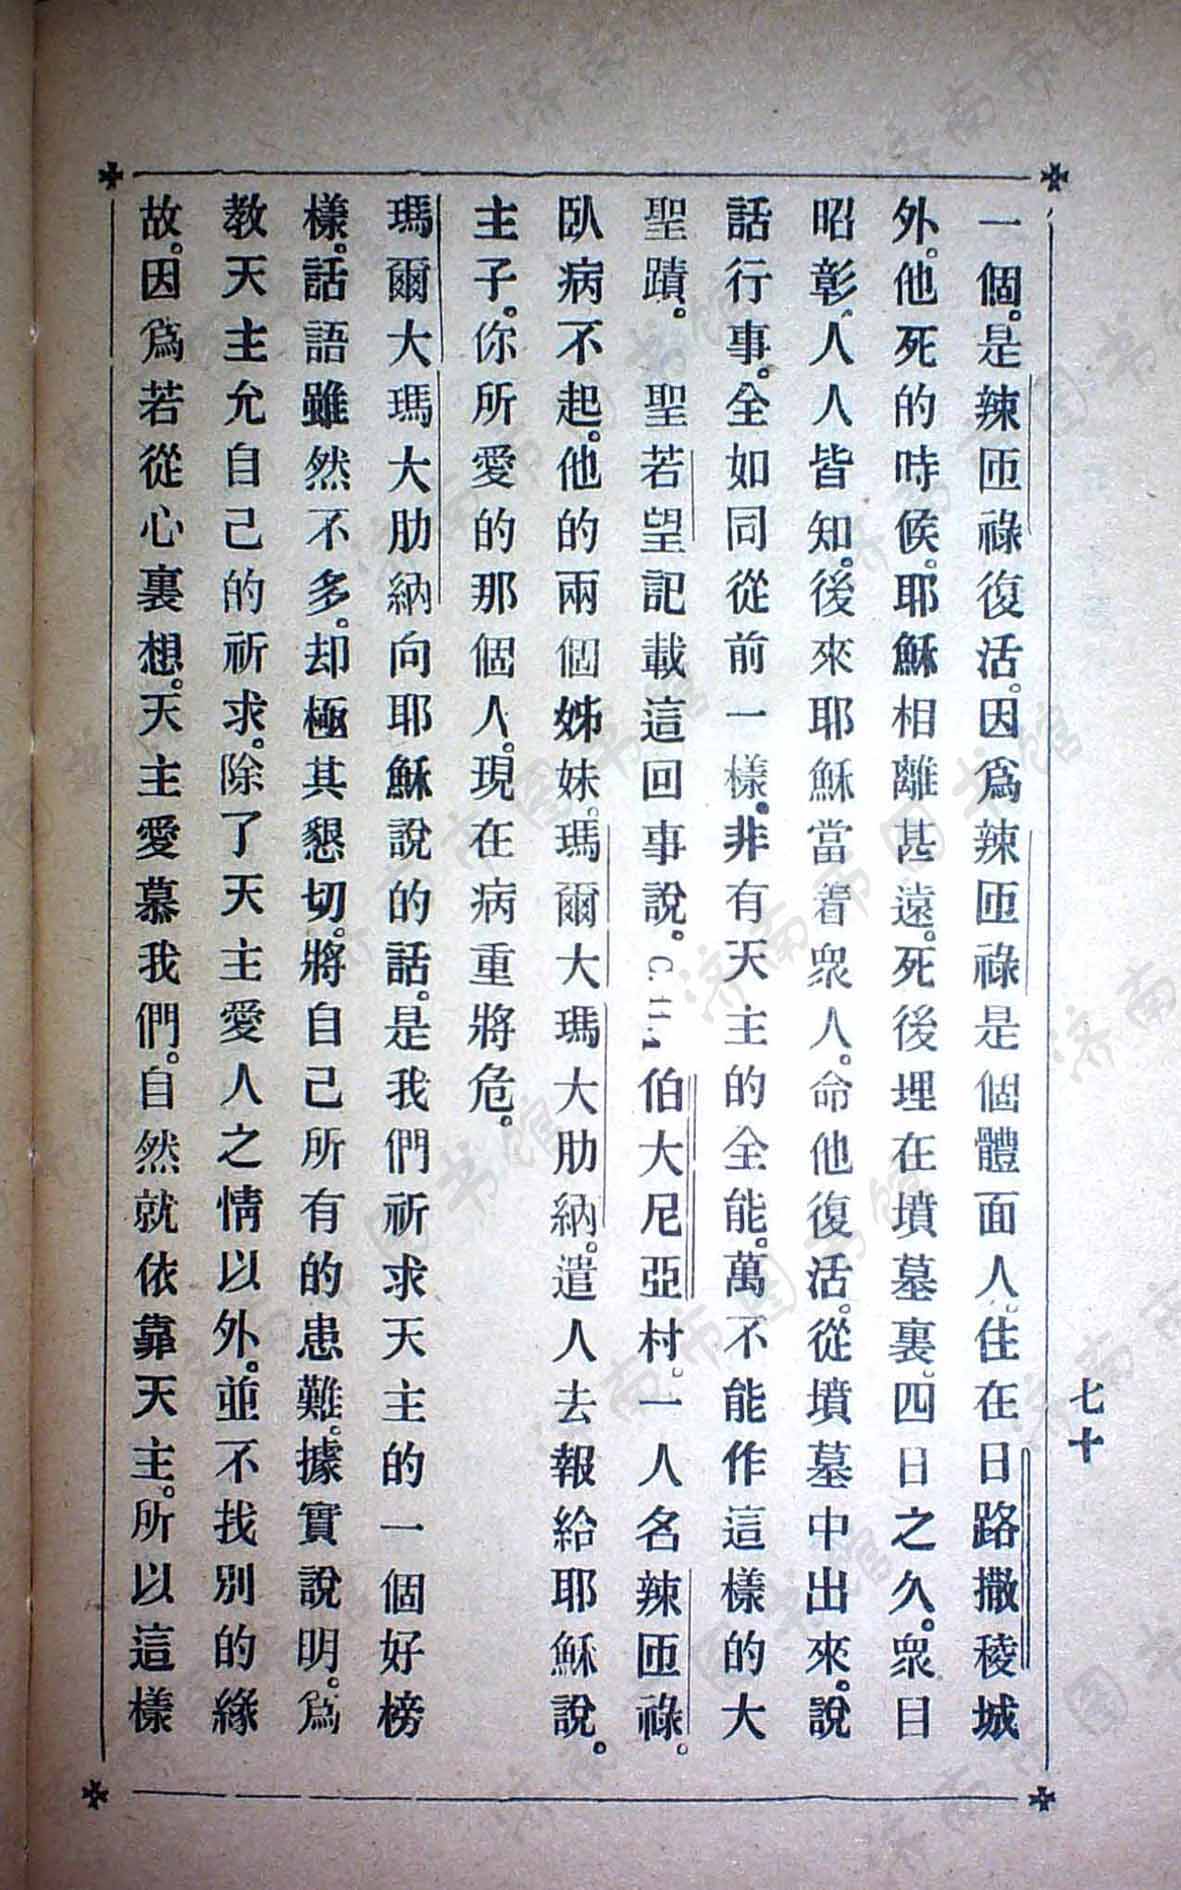 七十
一個。是辣匝祿復活。因爲辣匝祿是個體面人。住在日路撒稜城
外。他死的時候。耶穌相離甚遠。死後埋在墳墓裏。四日之久。衆目
昭彰。人人皆知。後來耶穌當着衆人。命他復活。從墳墓中出來。說
話行事。全如同從前一樣。非有天主的全能。萬不能作這樣的大
聖蹟。聖若望記載這回事說。C. 11. 1 伯大尼亞村。一人名辣匝祿。
臥病不起。他的兩個姊妹。瑪爾大瑪大肋納。遣人去報給耶穌說。
主子。你所愛的那個人。現在病重將危。
瑪爾大瑪大肋納向耶穌說的話。是我們祈求天主的一個好榜
樣。話語雖然不多。却極其懇切。將自己所有的患難。據實說明。爲
教天主允自己的祈求。除了天主愛人之情以外。並不找別的緣
故。因爲若從心裏想。天主愛慕我們。自然就依靠天主。所以這樣
济南市图书馆